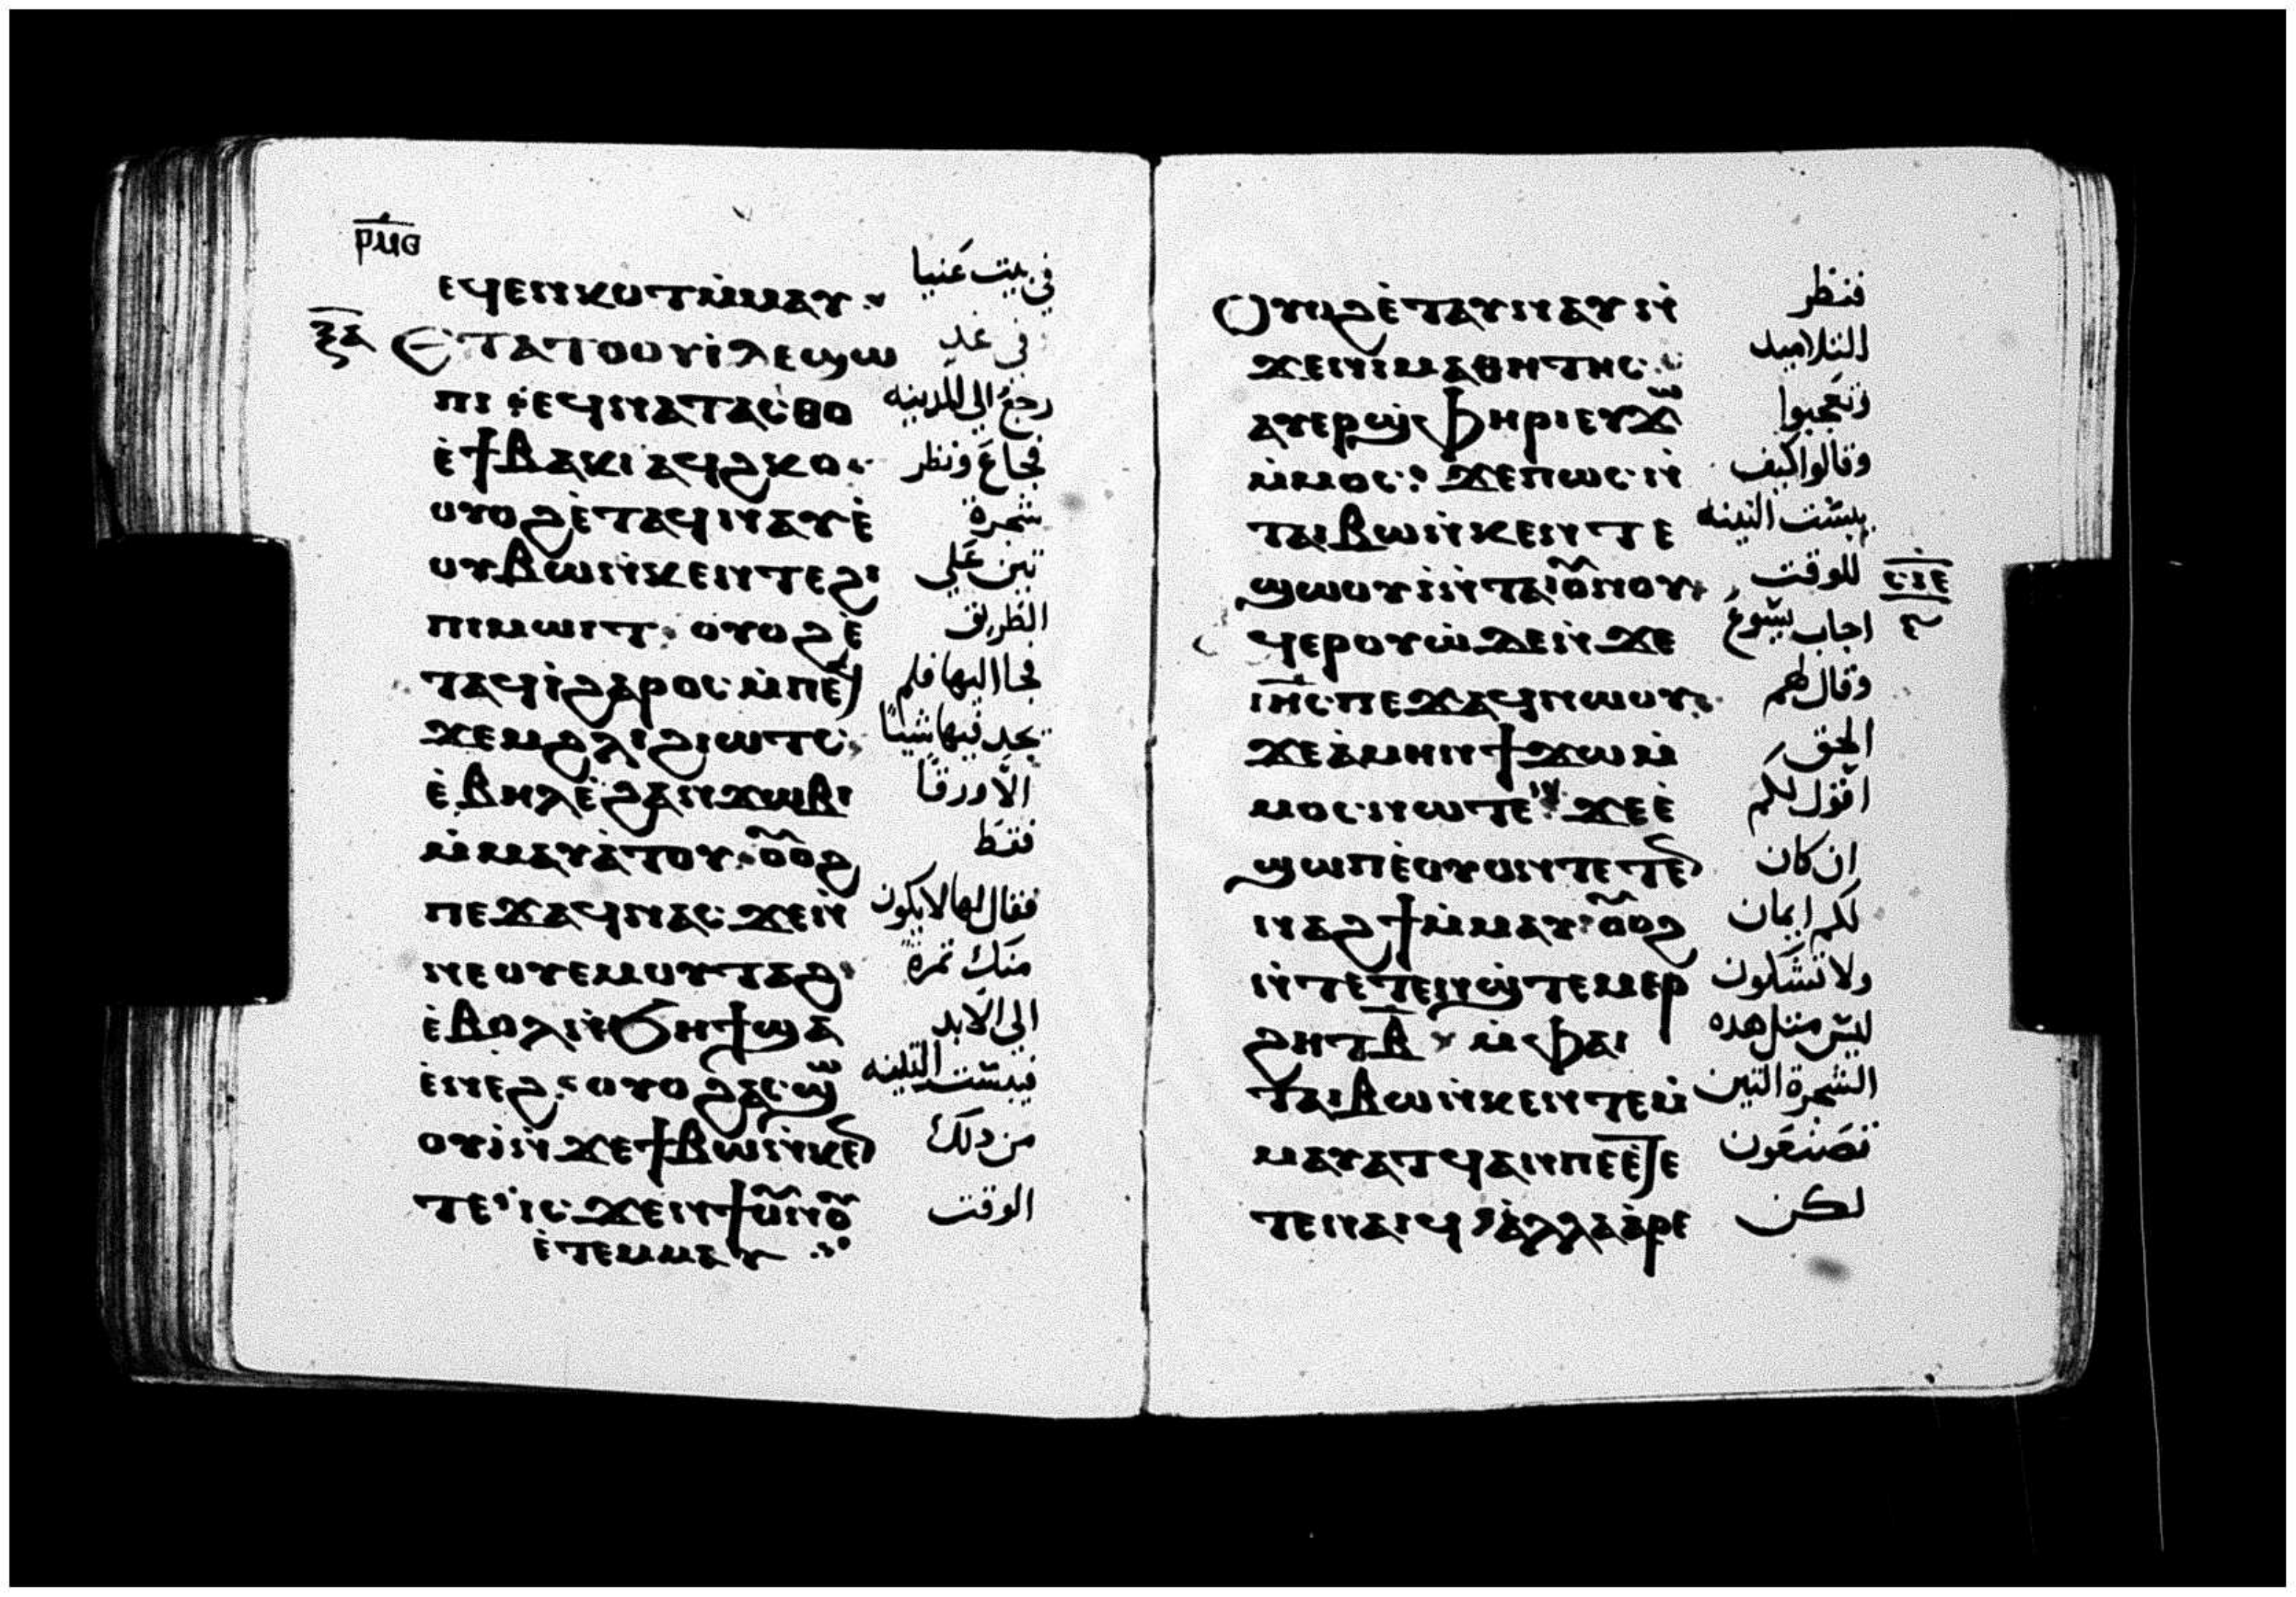 ⲣⲙⲑ
ⲉϥⲉⲛⲕⲟⲧⲙ̀ⲙⲁⲩ في بيت عنيا
ⲝⲁ ⲉⲧⲁⲧⲟⲟⲩⲓ̀ⲇⲉϣⲱ في غد
ⲡⲓ ⲉϥⲛⲁⲧⲁⲥⲑⲟ رجع الى المدينه
ⲉ̀ϯⲃⲁⲕⲓ ⲁϥϩⲕⲟ فجاع ونظر
ⲟⲩⲟϩⲉ̀ⲧⲁϥⲛⲁⲩⲉ̀ شجرة
ⲟⲩⲃⲱⲛ̀ⲕⲉⲛⲧⲉϩⲓ تين على
ⲡⲓⲙⲱⲓⲧ ⲟⲩⲟϩⲉ̀ الطريق
ⲧⲁϥⲓ̀ϩⲁⲣⲟⲥ ⲙ̀ⲡⲉϥ فجا اليها فلم
ϫⲉⲙϩⲗⲓϩⲓⲱⲧⲥ يجد فيها شيئًا
ⲉ̀ⲃⲏⲗⲉ̀ϩⲁⲛϫⲱⲃⲓ الا ورقًا
ⲙ̀ⲙⲁⲩⲁ̀ⲧⲟⲩ ⲟ̅ⲟϩ فقط
ⲡⲉϫⲁϥⲛⲁⲥ ϫⲉⲛ̀ فقال لها لا يكون
ⲛⲉⲟⲩⲉⲙⲟⲩⲧⲁϩ منك ثمرة
ⲉ̀ⲃⲟⲗⲛ̀ϧⲏϯϣⲁ الى الابد
ⲉ̀ⲛⲉϩ ⲟⲩⲟϩⲁⲥϣⲱ̅ فيبست التينه
ⲟⲩⲓ̀ⲛ̀ϫⲉϯⲃⲱⲛ̀ⲕⲉⲛ من ذلك
ⲧⲉ ⲓⲥϫⲉⲛϯⲟⲩⲛⲟⲩ الوقت
ⲉ̀ⲧⲉⲙⲙⲁⲩ
ⲟⲩⲟϩⲉ̀ⲧⲁⲩⲛⲁⲩⲛ̀ فنظر
ϫⲉⲛⲓⲙⲁⲑⲏⲧⲏⲥ التلاميد
ⲁⲩⲉⲣϣ̀ⲫⲏⲣⲓⲉⲩϫⲱ̅ وتعجبوا
ⲙ̀ⲙⲟⲥ ϫⲉⲡⲱⲥⲛ̀ وقالوا كيف
ⲧⲁⲓⲃⲱⲛ̀ⲕⲉⲛⲧⲉ يبست التينه
ϣⲱⲟⲩⲓ̀ⲛ̀ⲧⲁⲓⲟ̅ⲛⲟⲩ للوقت
ϥⲉⲣⲟⲩⲱ̀ⲇⲉⲛ̀ϫⲉ اجاب يسوع
ⲥⲓⲉ
ⲓⲏ̅ⲥ ⲡⲉϫⲁϥⲛⲱⲟⲩ وقال لهم
ϫⲉⲁ̀ⲙⲏⲛϯϫⲱⲙ̀ الحق
ⲙⲟⲥⲛⲱⲧⲉⲛ ϫⲉⲉ̀ اقول لكم
ϣⲱⲡⲉ̀ⲟⲩⲟⲛⲧⲉⲧⲉⲛ ان كان
ⲛⲁϩϯⲙ̀ⲙⲁⲩ ⲟ̅ⲟϩ لكم ايمان
ⲛ̀ⲧⲉⲧⲉⲛϣ̀ⲧⲉⲙⲉⲣ ولا تشكون
ϩⲏⲧⲃ̅ ⲙ̀ⲫⲁ ليس مثل هده
ⲧⲁⲓⲃⲱⲛ̀ⲕⲉⲛⲧⲉⲙ̀ الشجرة التين
ⲙⲁⲩⲁⲧϥⲁⲛⲡⲉⲉⲧⲉ تصنعون
ⲧⲉⲛⲁⲓϥ ⲁ̀ⲗⲗⲁⲁ̀ⲣⲉ لكن